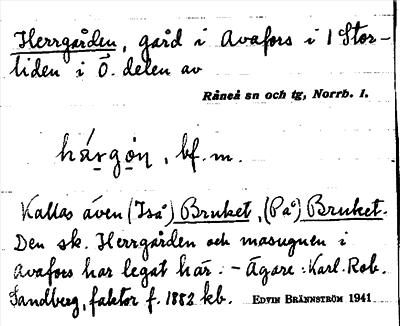 Herrgården, gård i Avafors i 1 Stor-
liden i Ö. delen av
Råneå sn och tg, Norrb. l.
hárgo̱n, bf. m.
Kallas även (Iså) Bruket, (På) Bruket.
Den sk. Herrgården och masugnen i
Avafors har legat här. – Ägare: Karl. Rob.
Sandberg, faktor f. 1882 kb. EDVIN BRÄNNSTRÖM 1941